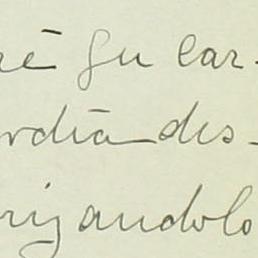 rē fu car-
rdia des-
rizandolo